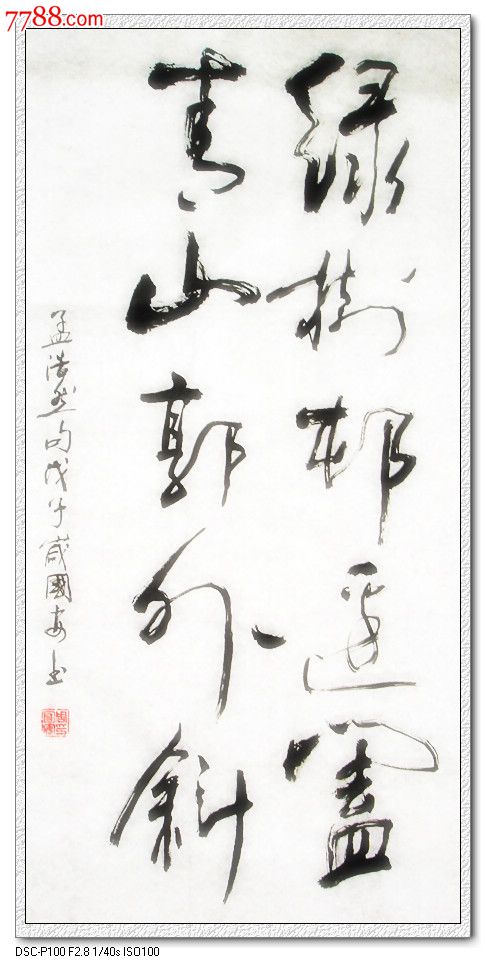 7788.com
绿樹邨邊蓋
青山郭外斜
孟浩然句戊子歲國安书
DSC-P100 F2.8 1/40s ISO100